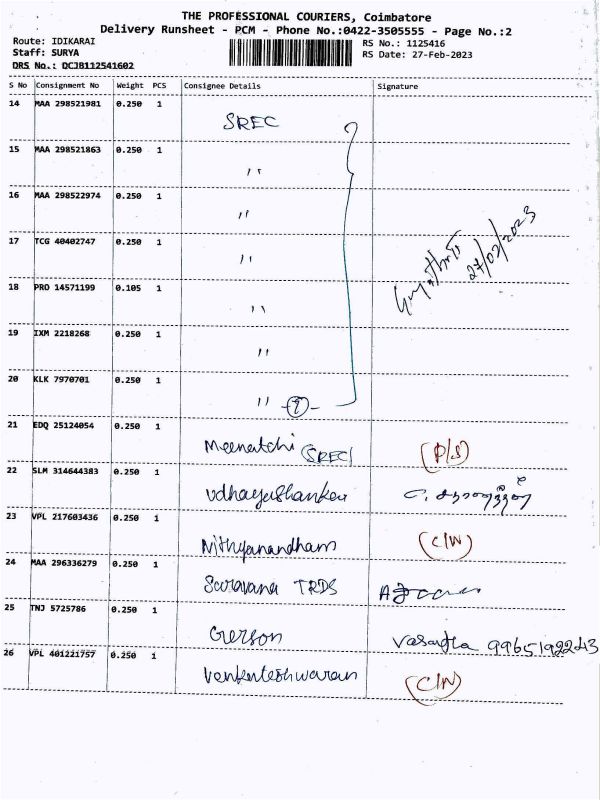 THE PROFESSIONAL COURIERS, Coimbatore
Delivery Runsheet - PCM - Phone No.:0422-3505555 - Page No.:2
Route: IDIKARAI RS No.: 1125416
Staff: SURYA RS Date: 27-Feb-2023
DRS No.: DCJB112541602
S No Consignment No Weight PCS Consignee Details Signature
14 MAA 298521981 0.250 1 SREC
15 MAA 298521863 0.250 1 "
16 MAA 298522974 0.250 1 "
17 TCG 40402747 0.250 1 "
27/02/2023
18 PRO 14571199 0.105 1 "
19 IXM 2218268 0.250 1 "
20 KLK 7970701 0.250 1 "
21 EDQ 25124054 0.250 1 Meenatchi (SREC) (P/S)
22 SLM 314644383 0.250 1 Udhayashankar
23 VPL 217603436 0.250 1 Nithyanandham (C/N)
24 MAA 296336279 0.250 1 Saravana TRDS
25 TNJ 5725786 0.250 1 Gerson 9965192243
26 VPL 401221757 0.250 1 Venkateshwaran (C/N)